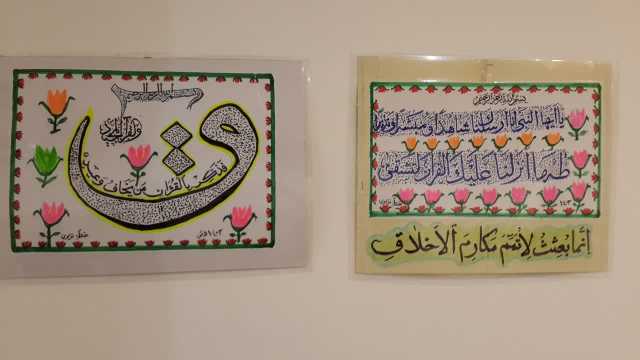 بسم الله الرحمن الرحيم
ق
والقرآن المجيد
فذكر بالقرآن من يخاف وعيد
بسم الله الرحمن الرحيم
يا أيها النبي إنا أرسلناك شاهدا ومبشرا ونذيرا
طه ما أنزلنا عليك القرآن لتشقى
إنما بعثت لأتمم مكارم الأخلاق